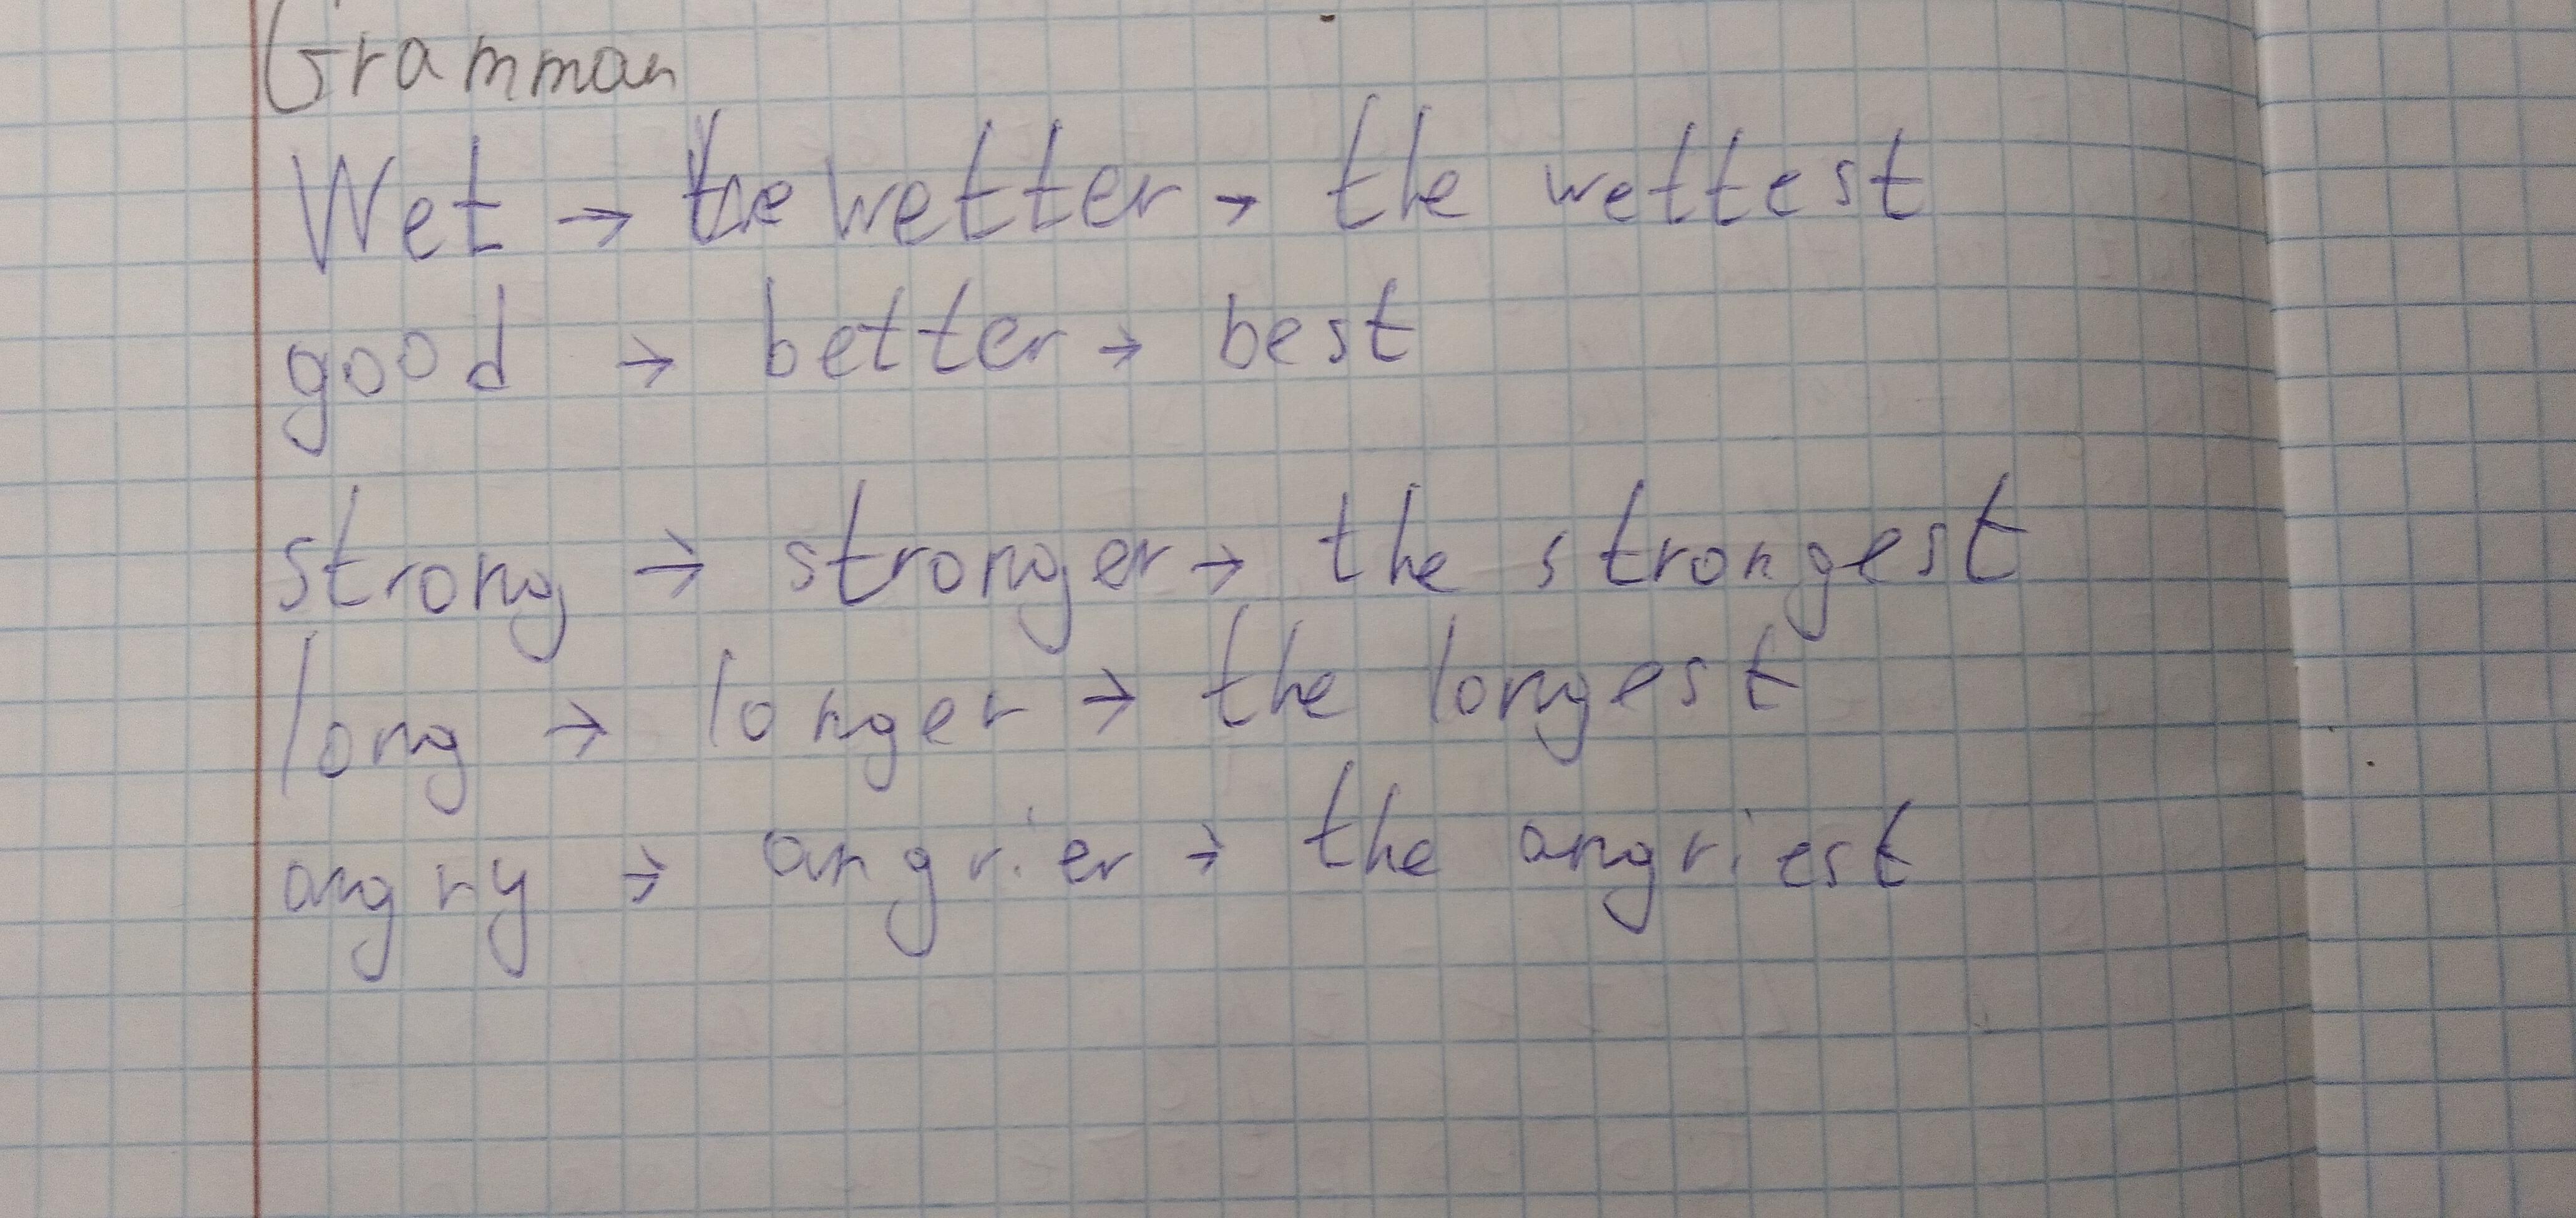 Grammar
Wet → the wetter → the wettest
good → better → best
strong → stronger → the strongest
long → longer → the longest
angry → angrier → the angriest